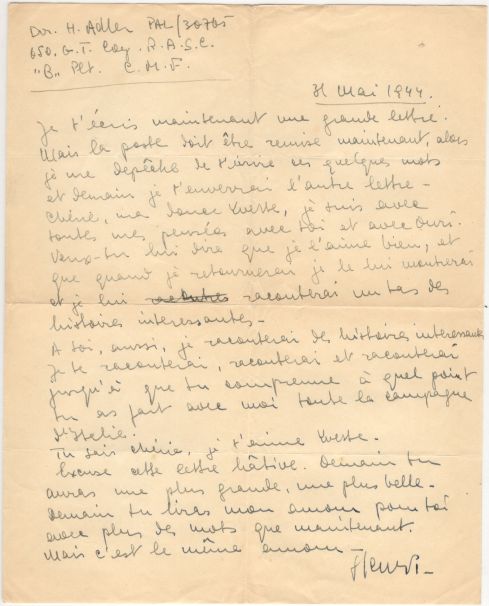 Dvr. H. Adler PAL/30705
650. G.T. Coy. R.A.S.C.
"B" Plt. C.M.F.
31 Mai 1944.
Je t'écris maintenant une grande lettre.
Mais la poste doit être remise maintenant, alors
je me depêche de t'écrire ces quelques mots
et demain je t'enverrai l'autre lettre -
Chérie, ma douce Yvette, je suis avec
toutes mes pensées avec toi et avec Ouri.
Veux-tu lui dire que je l'aime bien, et
que quand je retournerai je le lui montrerai
et je lui raconterai un tas des
histoires interessantes -
A toi, aussi, je raconterai des histoires interessantes
Je te raconterai, raconterai et raconterai
jusqu'à que tu comprenne à quel point
tu as fait avec moi toute la campagne
d'Italie.
Tu sais chérie, je t'aime Yvette -
Excuse cette lettre hâtive. Demain tu
auras une plus grande, une plus belle -
Demain tu liras mon amour pour toi
avec plus des mots que maintenant.
Mais c'est le même amour -
Henri -